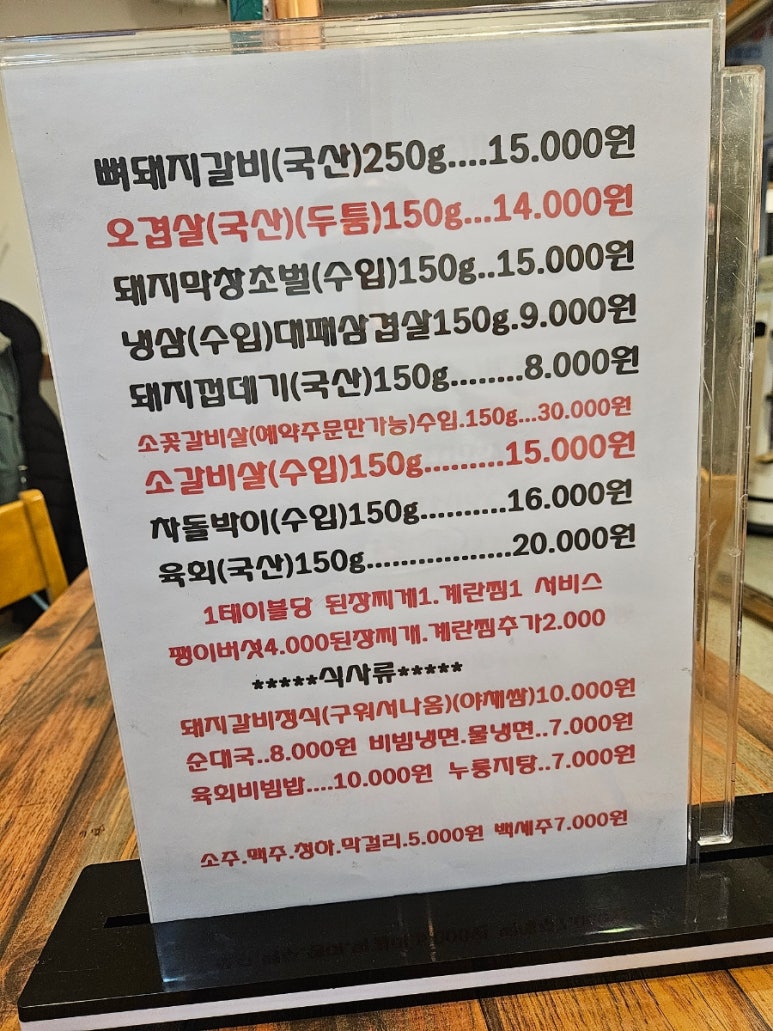 뼈돼지갈비(국산)250g....15.000원
오겹살(국산)(두툼)150g...14.000원
돼지막창초벌(수입)150g..15.000원
냉삼(수입)대패삼겹살150g.9.000원
돼지껍데기(국산)150g........8.000원
소꽃갈비살(예약주문만가능)수입.150g...30.000원
소갈비살(수입)150g.........15.000원
차돌박이(수입)150g..........16.000원
육회(국산)150g.................20.000원
1테이블당 된장찌게1.계란찜1 서비스
팽이버섯4.000된장찌개.계란찜추가2.000
*****식사류*****
돼지갈비정식(구워서나옴)(야채쌈)10.000원
순대국..8.000원 비빔냉면.물냉면..7.000원
육회비빔밥....10.000원 누룽지탕..7.000원
소주.맥주.청하.막걸리.5.000원 백세주7.000원